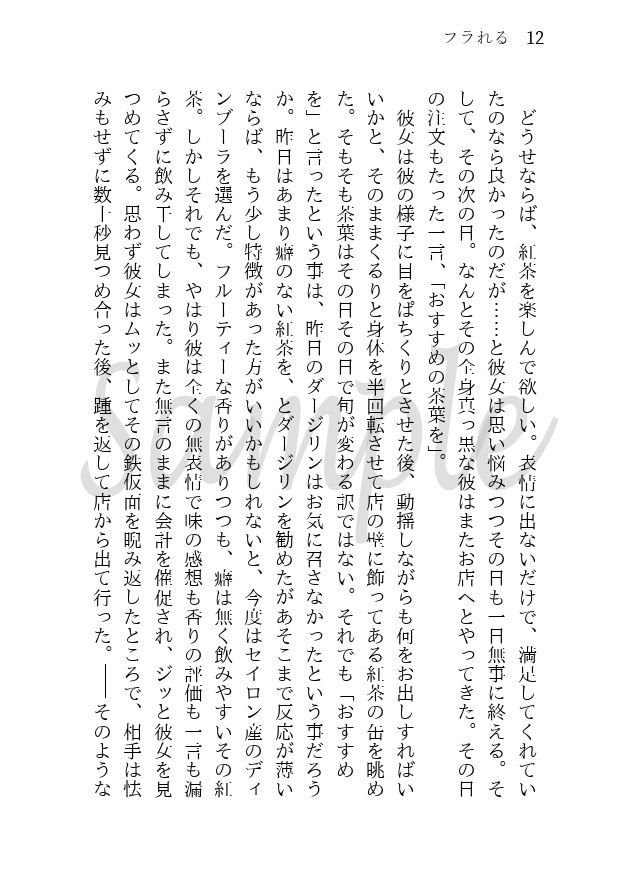 フラれる 12
　どうせならば、紅茶を楽しんで欲しい。表情に出ないだけで、満足してくれてい
たのなら良かったのだが……と彼女は思い悩みつつその日も一日無事に終える。そ
して、その次の日。なんとその全身真っ黒な彼はまたお店へとやってきた。その日
の注文もたった一言、「おすすめの茶葉を」。
　彼女は彼の様子に目をぱちくりとさせた後、動揺しながらも何をお出しすればい
いかと、そのままくるりと身体を半回転させて店の壁に飾ってある紅茶の缶を眺め
た。そもそも茶葉はその日その日で旬が変わる訳ではない。それでも「おすすめ
を」と言ったという事は、昨日のダージリンはお気に召さなかったという事だろう
か。昨日はあまり癖のない紅茶を、とダージリンを勧めたがあそこまで反応が薄い
ならば、もう少し特徴があった方がいいかもしれないと、今度はセイロン産のディ
ンブーラを選んだ。フルーティーな香りがありつつも、癖は無く飲みやすいその紅
茶。しかしそれでも、やはり彼は全くの無表情で味の感想も香りの評価も一言も漏
らさずに飲み干してしまった。また無言のままに会計を催促され、ジッと彼女を見
つめてくる。思わず彼女はムッとしてその鉄仮面を睨み返したところで、相手は怯
みもせずに数十秒見つめ合った後、踵を返して店から出て行った。――そのような
Sample